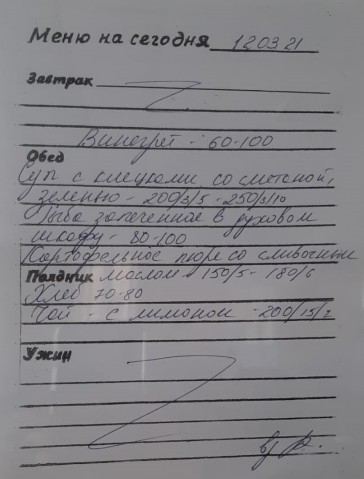 Меню на сегодня 12.03.21
Завтрак
Винегрет - 60-100
Обед
Суп с клецками со сметаной,
зеленью - 200/5/5 - 250/5/10
Рыба запеченное в духовом
шкафу - 80-100
Картофельное пюре со сливочным
Полдник маслом - 150/5 - 180/6
Хлеб 70-80
Чай - с лимоном - 200/15/7
Ужин